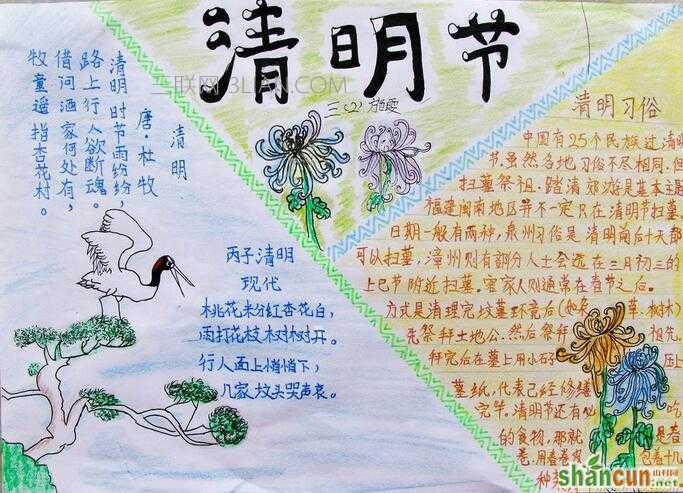 清明节
三联网 3LIAN.COM
三(2)
清明
唐·杜牧
清明时节雨纷纷，
路上行人欲断魂。
借问酒家何处有，
牧童遥指杏花村。
丙子清明
现代
桃花粉红杏花白，
雨打花枝树树开。
行人面上悄悄下；
几家坟头哭声哀。
清明习俗
中国有25个民族过清明
节，虽然各地习俗不尽相同，但
扫墓祭祖、踏清郊游是基本主
福建闽南地区并不一定只在清明节扫墓。
日期一般有两种，泉州习俗是清明前后十天都
可以扫墓。漳州则有部分人士会选在三月初三的
上巳节附近扫墓。客家人则通常在春节之后。
方式是清理完坟墓环境后（如 草、树木）
先祭拜土地公，然后祭拜 祖先。
拜完后在墓上用小石 压上
墓纸，代表已经修缮
完毕。清明节还有 吃
的食物，那就 是春
卷。用春卷 包着十几
种
shancun 山村网
.net